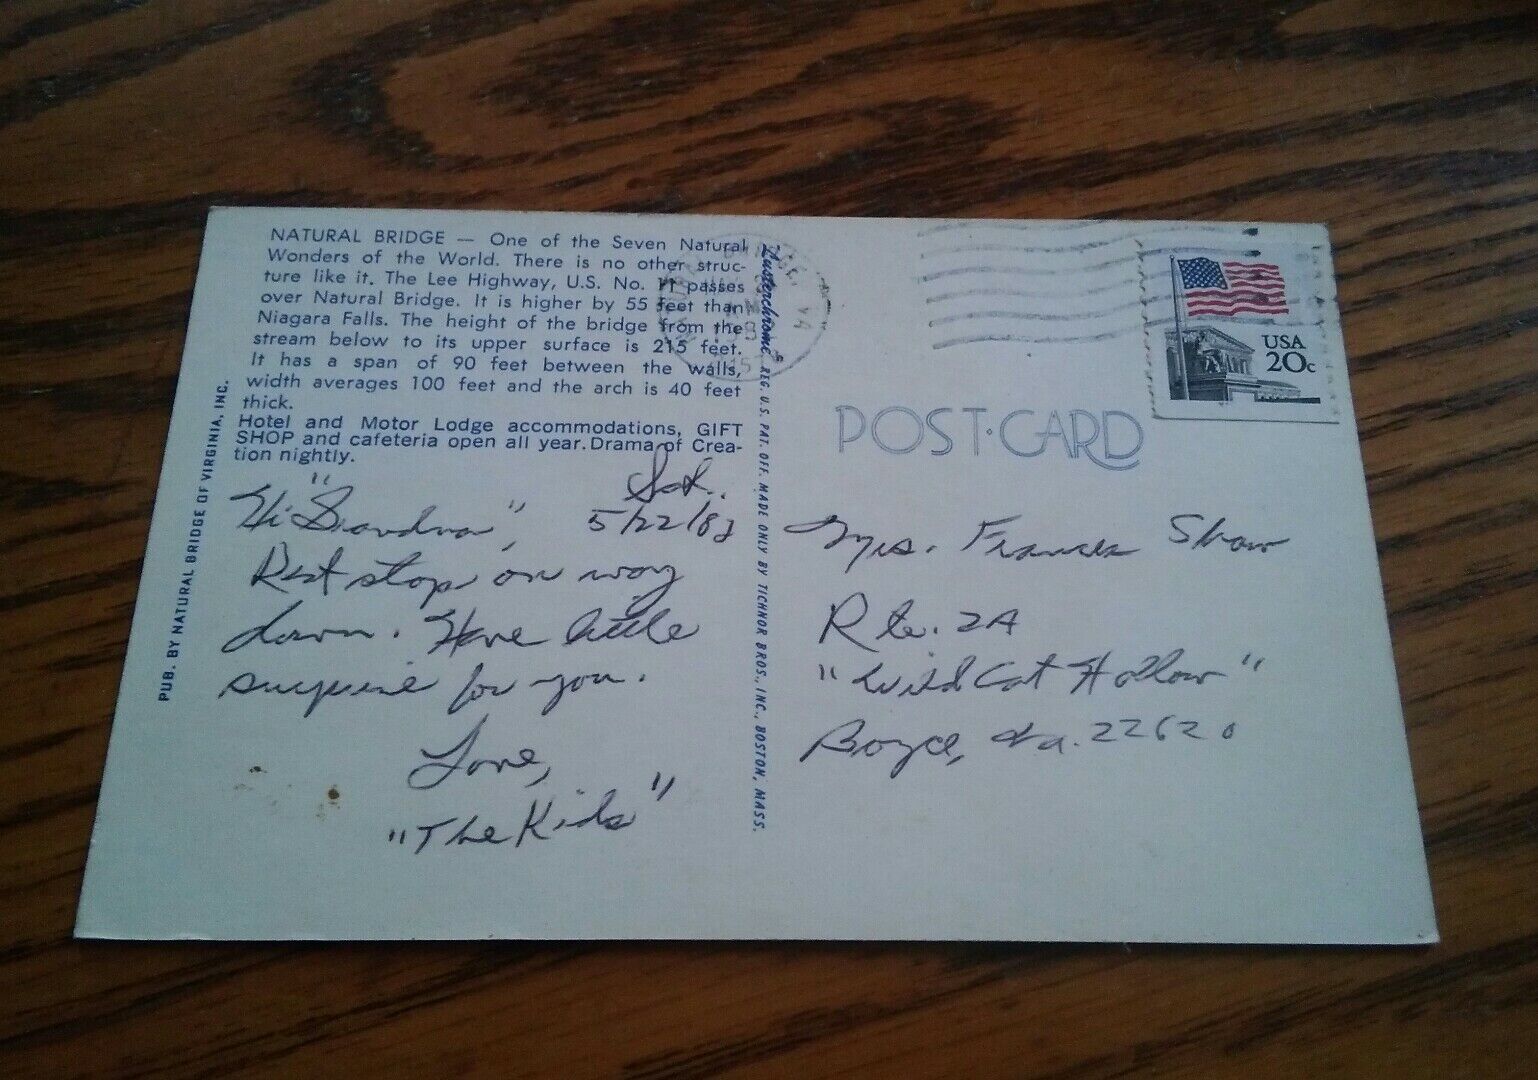 NATURAL BRIDGE — One of the Seven Natural
Wonders of the World. There is no other struc-
ture like it. The Lee Highway, U.S. No. 11 passes
over Natural Bridge. It is higher by 55 feet than
Niagara Falls. The height of the bridge from the
stream below to its upper surface is 215 feet.
It has a span of 90 feet between the walls,
width averages 100 feet and the arch is 40 feet
thick.
Hotel and Motor Lodge accommodations, GIFT
SHOP and cafeteria open all year. Drama of Crea-
tion nightly.
Sat.
5/22/82
Hi "Grandma",
Rest stop on way
down. Have little
surprise for you.
Love,
"The Kids"
PUB. BY NATURAL BRIDGE OF VIRGINIA, INC.
Lusterchrome REG. U.S. PAT. OFF. MADE ONLY BY TICHNOR BROS., INC., BOSTON, MASS.
BRIDGE, VA
USA
20c
POST·CARD
Mrs. Frances Shaw
Rte. 2A
"Wild Cat Hollow"
Boyce, Va. 22620